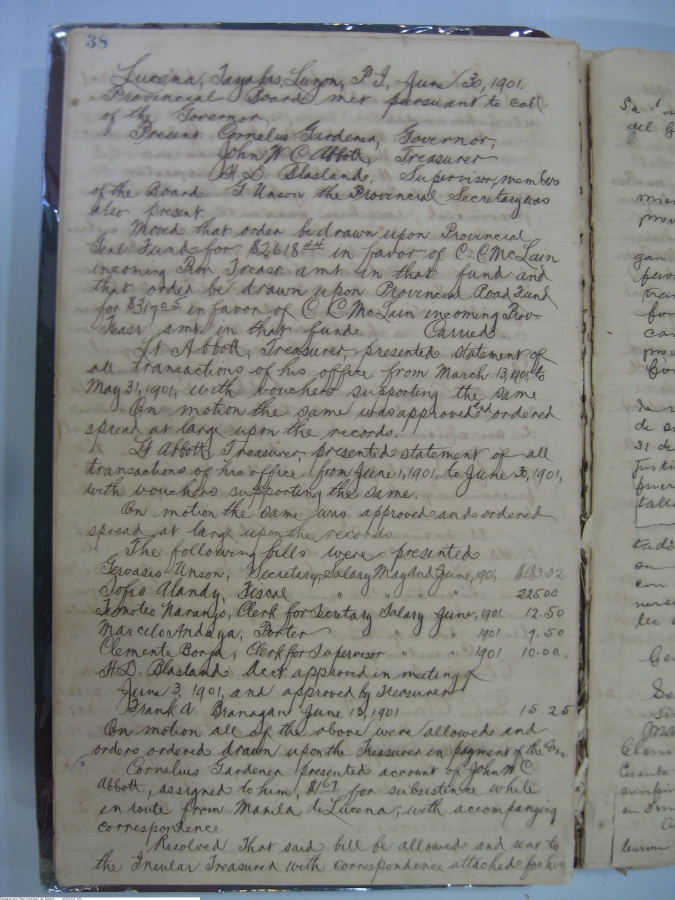 38
Lucena, Tayabas, Luzon, P.I. June 30, 1901.
Provincial Board met pursuant to call
of the Governor
Present Cornelius Gardener, Governor,
John W C Abbott, Treasurer
H. D. Blasland, Supervisor, members
of the Board G Unson the Provincial Secretary was
also present.
Moved that order be drawn upon Provincial
Genl Funds for $2618 44 in favor of C. C McLain
incoming Prov Treasr amt in that fund and
that order be drawn upon Provincial Road Fund
for in favor of C C McLain incoming Prov
Treasr amt in that fund. Carried.
Lt Abbott, Treasurer, presented statement of
all transactions of his office from March 13, 1901, to
May 31, 1901, with vouchers supporting the same.
On motion the same was approved and ordered
spread at large upon the records.
Lt Abbott, Treasurer, presented statement of all
transactions of his office from June 1, 1901, to June 30, 1901,
with vouchers supporting the same.
On motion the same was approved and ordered
spread at large upon the records
The following bills were presented
Gervasio Unson, Secretary, Salary May and June, 1901 $183.32
Sofio Alandy, Fiscal " " " " 225 00
Timoteo Naranjo, Clerk for Secretary Salary June, 1901 12.50
Marcelo Andaya, Porter " " 1901 7.50
Clemente Borja, Clerk for Supervisor " " 1901 10.00
H. D. Blasland Acct approved in meeting of
June 3, 1901, and approved by Treasurer
Frank A Branagan June 13, 1901 15.25
On motion all of the above were allowed and
orders ordered drawn upon the Treasurer in payment of the
Cornelius Gardener presented account of John W C
Abbott, assigned to him, for subsistence while
en route from Manila to Lucena, with accompanying
correspondence
Resolved That said bill be allowed and sent to
the Insular Treasurer with correspondence attached for his
del
de
31 de
con